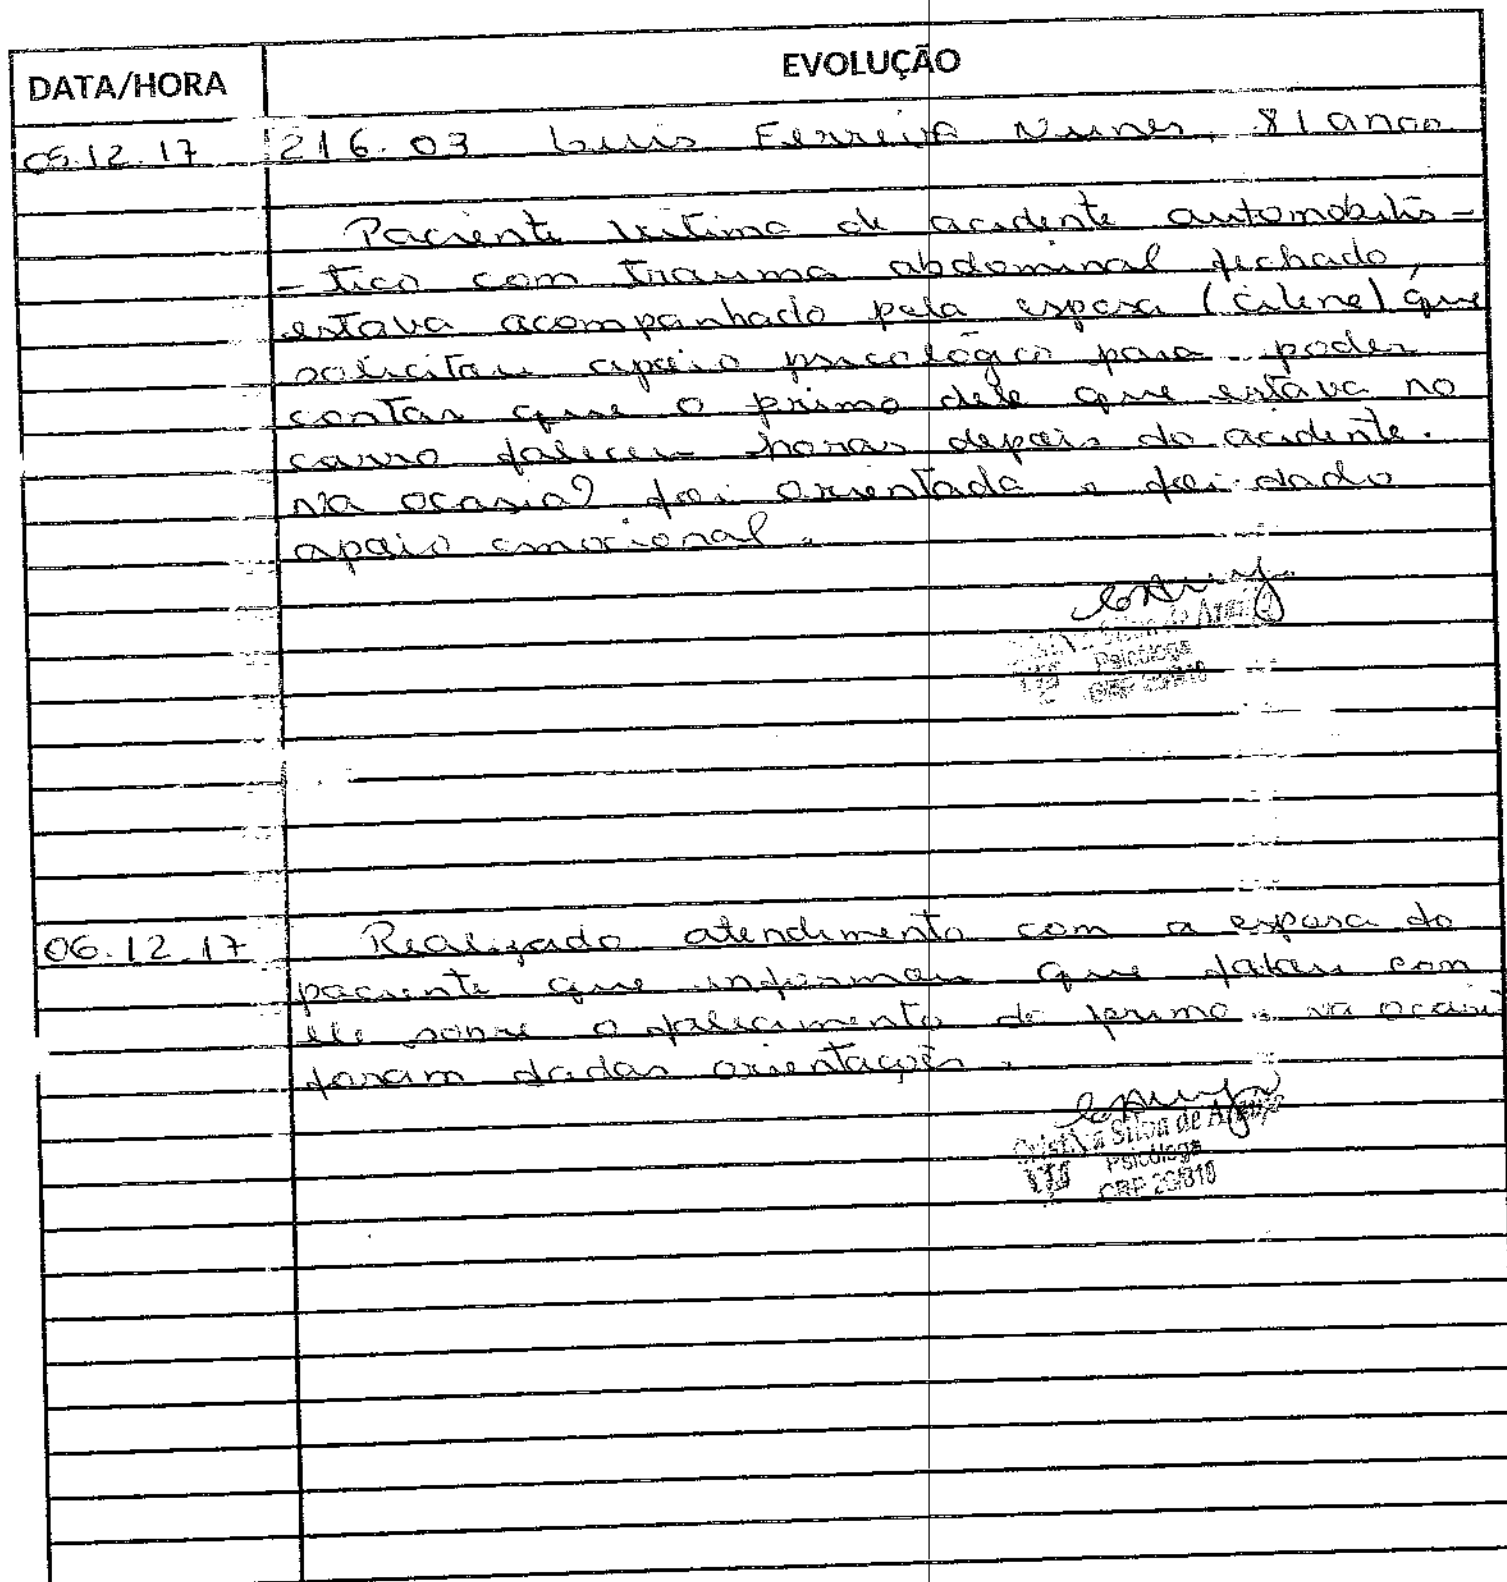 DATA/HORA EVOLUÇÃO
05.12.17 216.03 Luis Ferreira Nunes, 81 anos
Paciente vitima de acidente automobilis-
-tico com trauma abdominal fechado,
estava acompanhado pela esposa (Cilene) que
solicitou apoio psicológico para poder
contar que o primo dele que estava no
carro faleceu horas depois do acidente.
Na ocasião foi orientada e foi dado
apoio emocional.
Silva de Araújo
Psicóloga
CRP
06.12.17 Realizado atendimento com a esposa do
paciente que informou que falou com
ele sobre o falecimento do primo. Na ocasiã
foram dadas orientações.
Silva de Araújo
Psicóloga
CRP